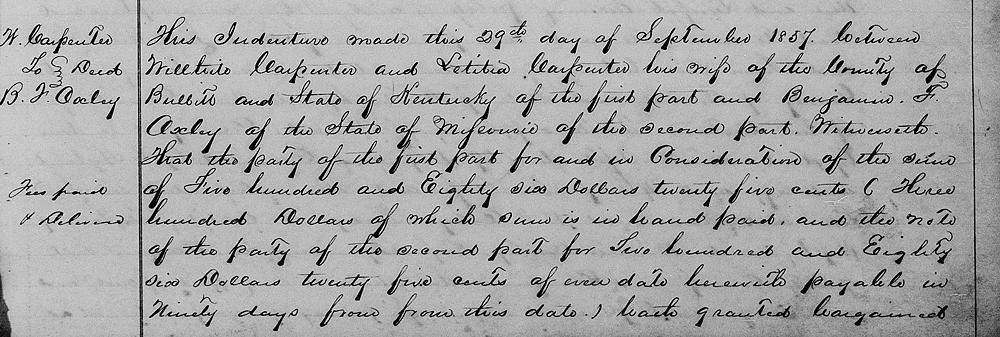 W. Carpenter
To } Deed
B. F. Oxley
Fees paid
& Delivered
This Indenture made this 29th day of September 1857. between
Willhite Carpenter and Letitia Carpenter his wife of the County of
Bullitt and State of Kentucky of the first part and Benjamin. F.
Oxley of the State of Missourie of the second part. Witnesseth.
That the party of the first part for and in Consideration of the sum
of Five hundred and Eighty six Dollars twenty five cents ( Three
hundred Dollars of which sum is in hand paid. and the note
of the party of the second part for Two hundred and Eighty
six Dollars twenty five cents of even date herewith payable in
Ninety days from from this date.) hath granted bargained